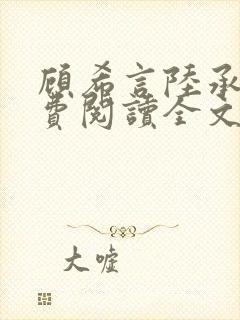 顾希言陸承
費閱讀全文
大嘘